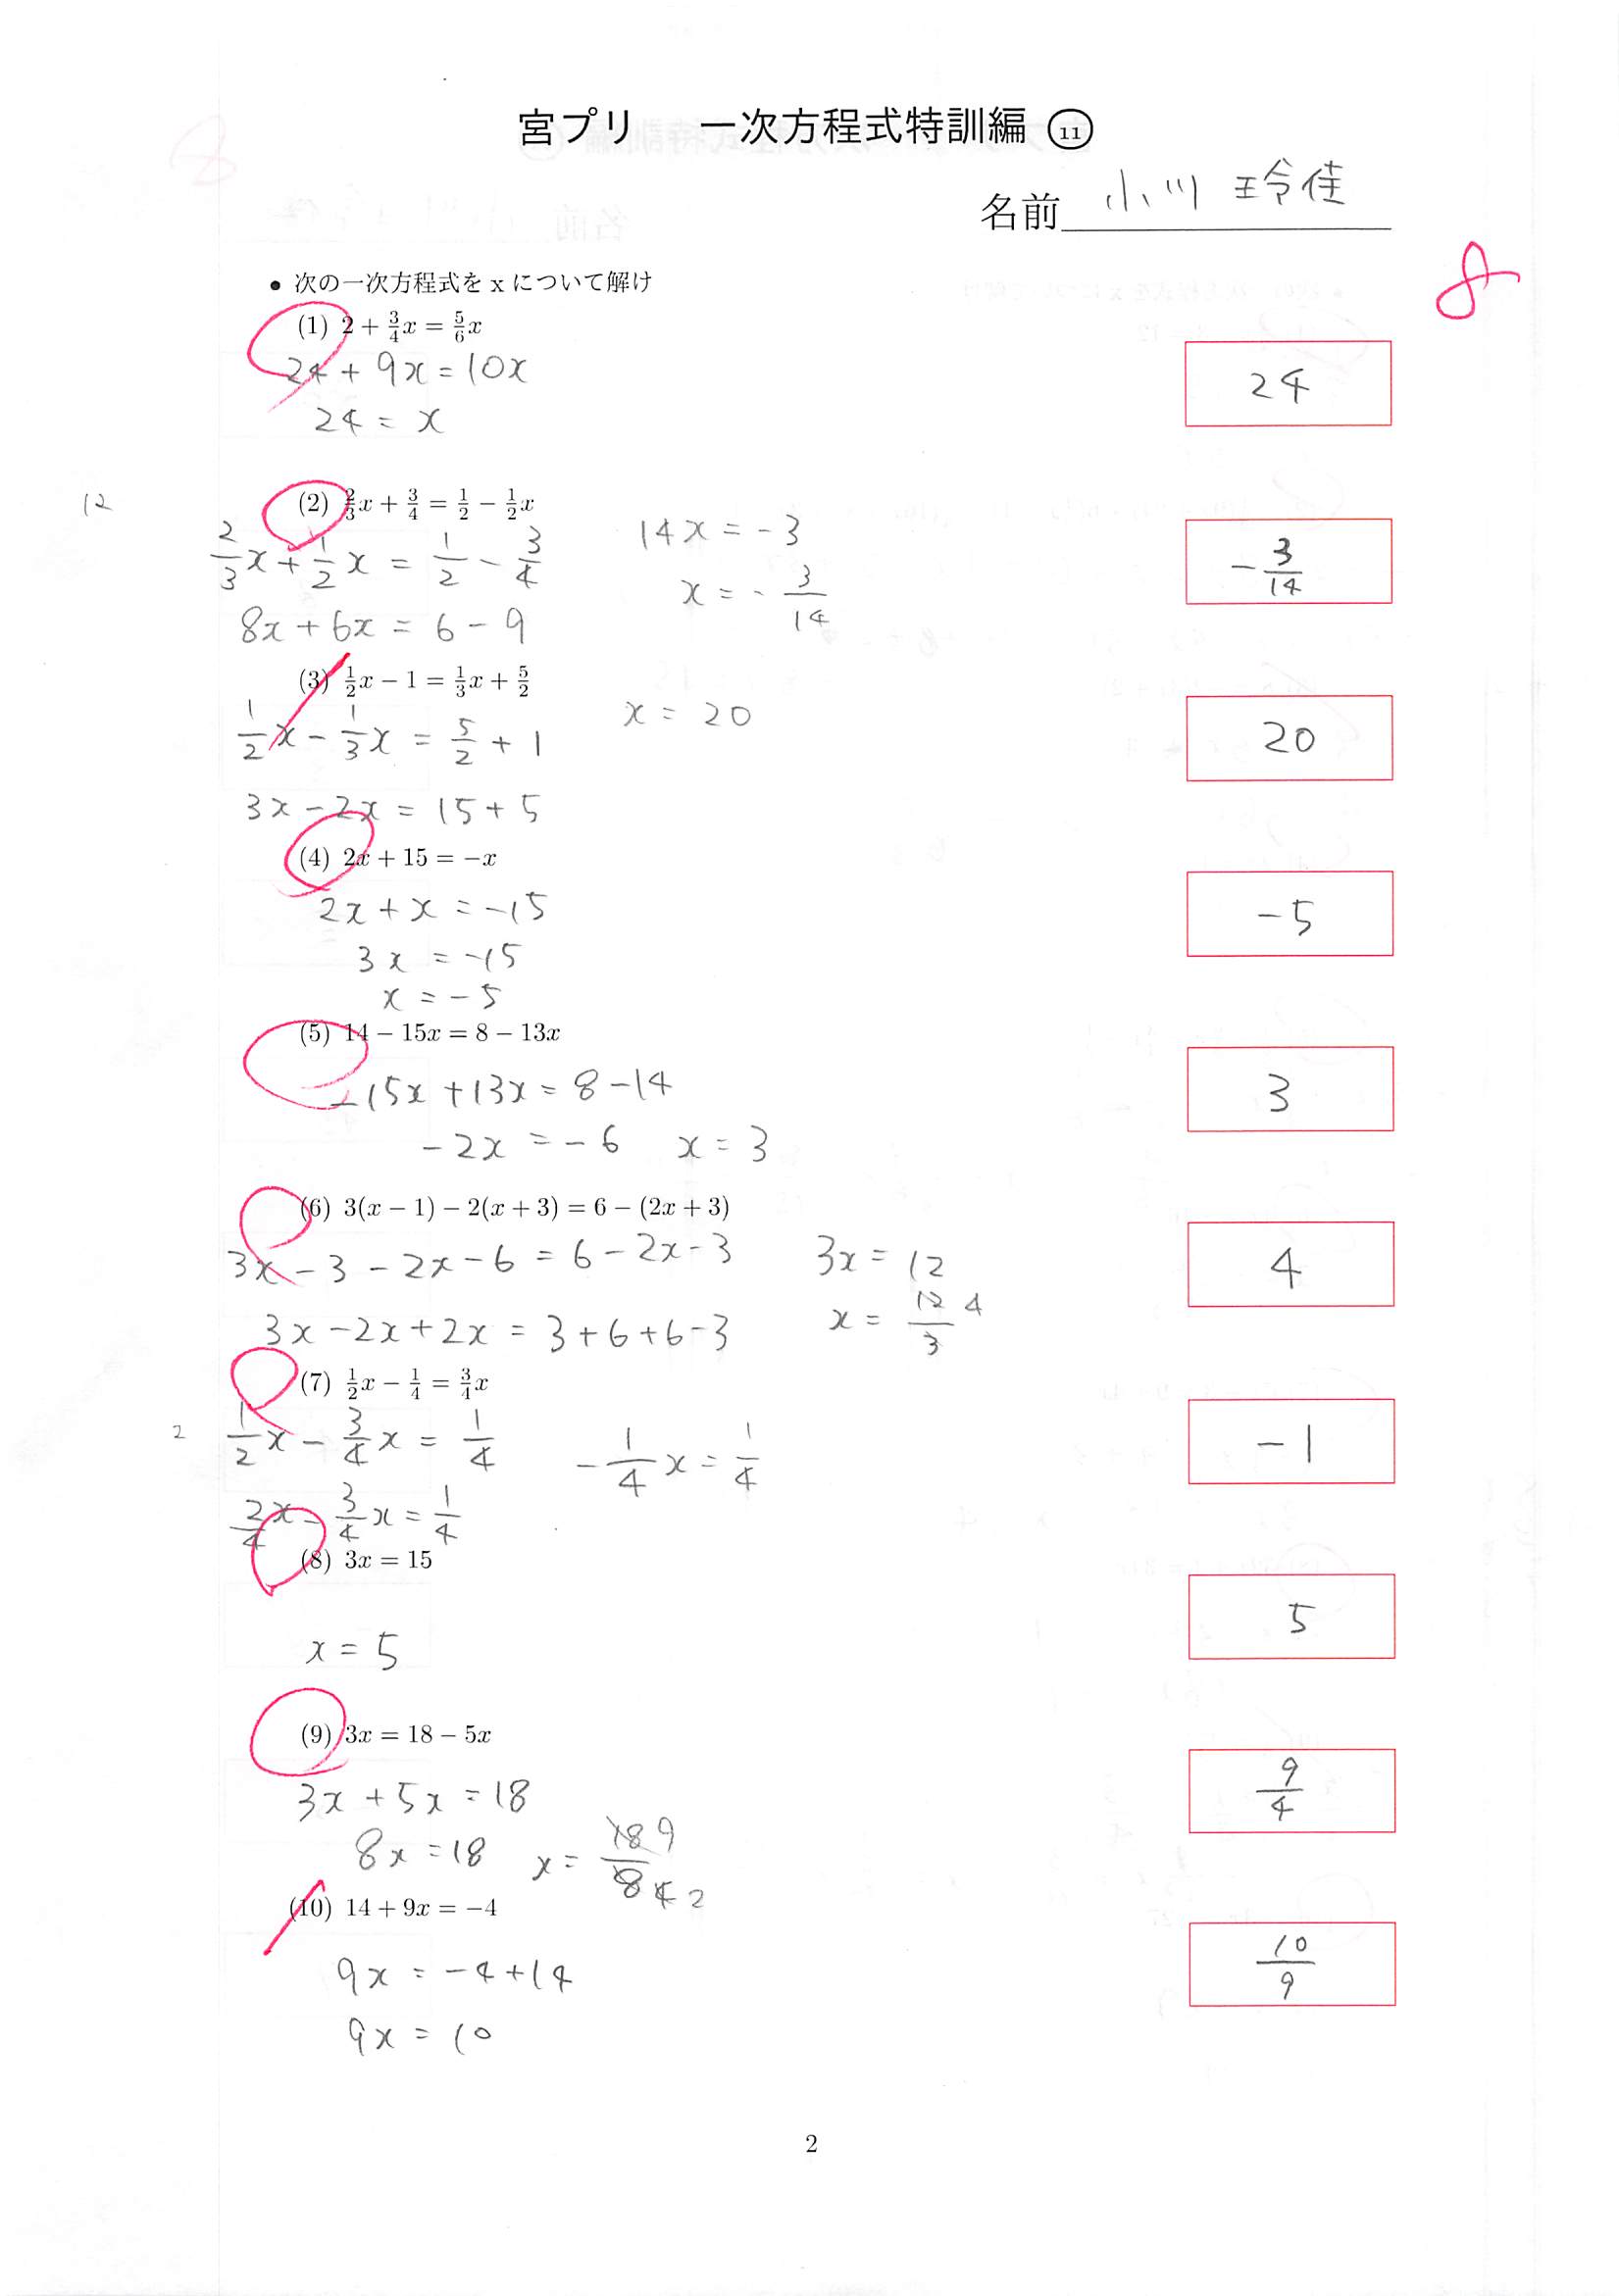 宮プリ 一次方程式特訓編 ⑪
名前 小川 玲佳
8
• 次の一次方程式を x について解け
(1) 2 + 3/4 x = 5/6 x
24 + 9x = 10x
24 = x
24
12
(2) 2/3 x + 3/4 = 1/2 − 1/2 x
2/3 x + 1/2 x = 1/2 − 3/4
8x + 6x = 6 − 9
14x = −3
x = − 3/14
− 3/14
(3) 1/2 x − 1 = 1/3 x + 5/2
1/2 x − 1/3 x = 5/2 + 1
3x − 2x = 15 + 5
x = 20
20
(4) 2x + 15 = −x
2x + x = −15
3x = −15
x = −5
−5
(5) 14 − 15x = 8 − 13x
−15x + 13x = 8 − 14
−2x = −6 x = 3
3
(6) 3(x − 1) − 2(x + 3) = 6 − (2x + 3)
3x − 3 − 2x − 6 = 6 − 2x − 3
3x − 2x + 2x = 3 + 6 + 6 − 3
3x = 12
x = 12/3 4
4
(7) 1/2 x − 1/4 = 3/4 x
2
1/2 x − 3/4 x = 1/4
2/4 x − 3/4 x = 1/4
− 1/4 x = 1/4
−1
(8) 3x = 15
x = 5
5
(9) 3x = 18 − 5x
3x + 5x = 18
8x = 18 x = 18/8 9 4 2
9/4
(10) 14 + 9x = −4
9x = −4 + 14
9x = 10
10/9
2